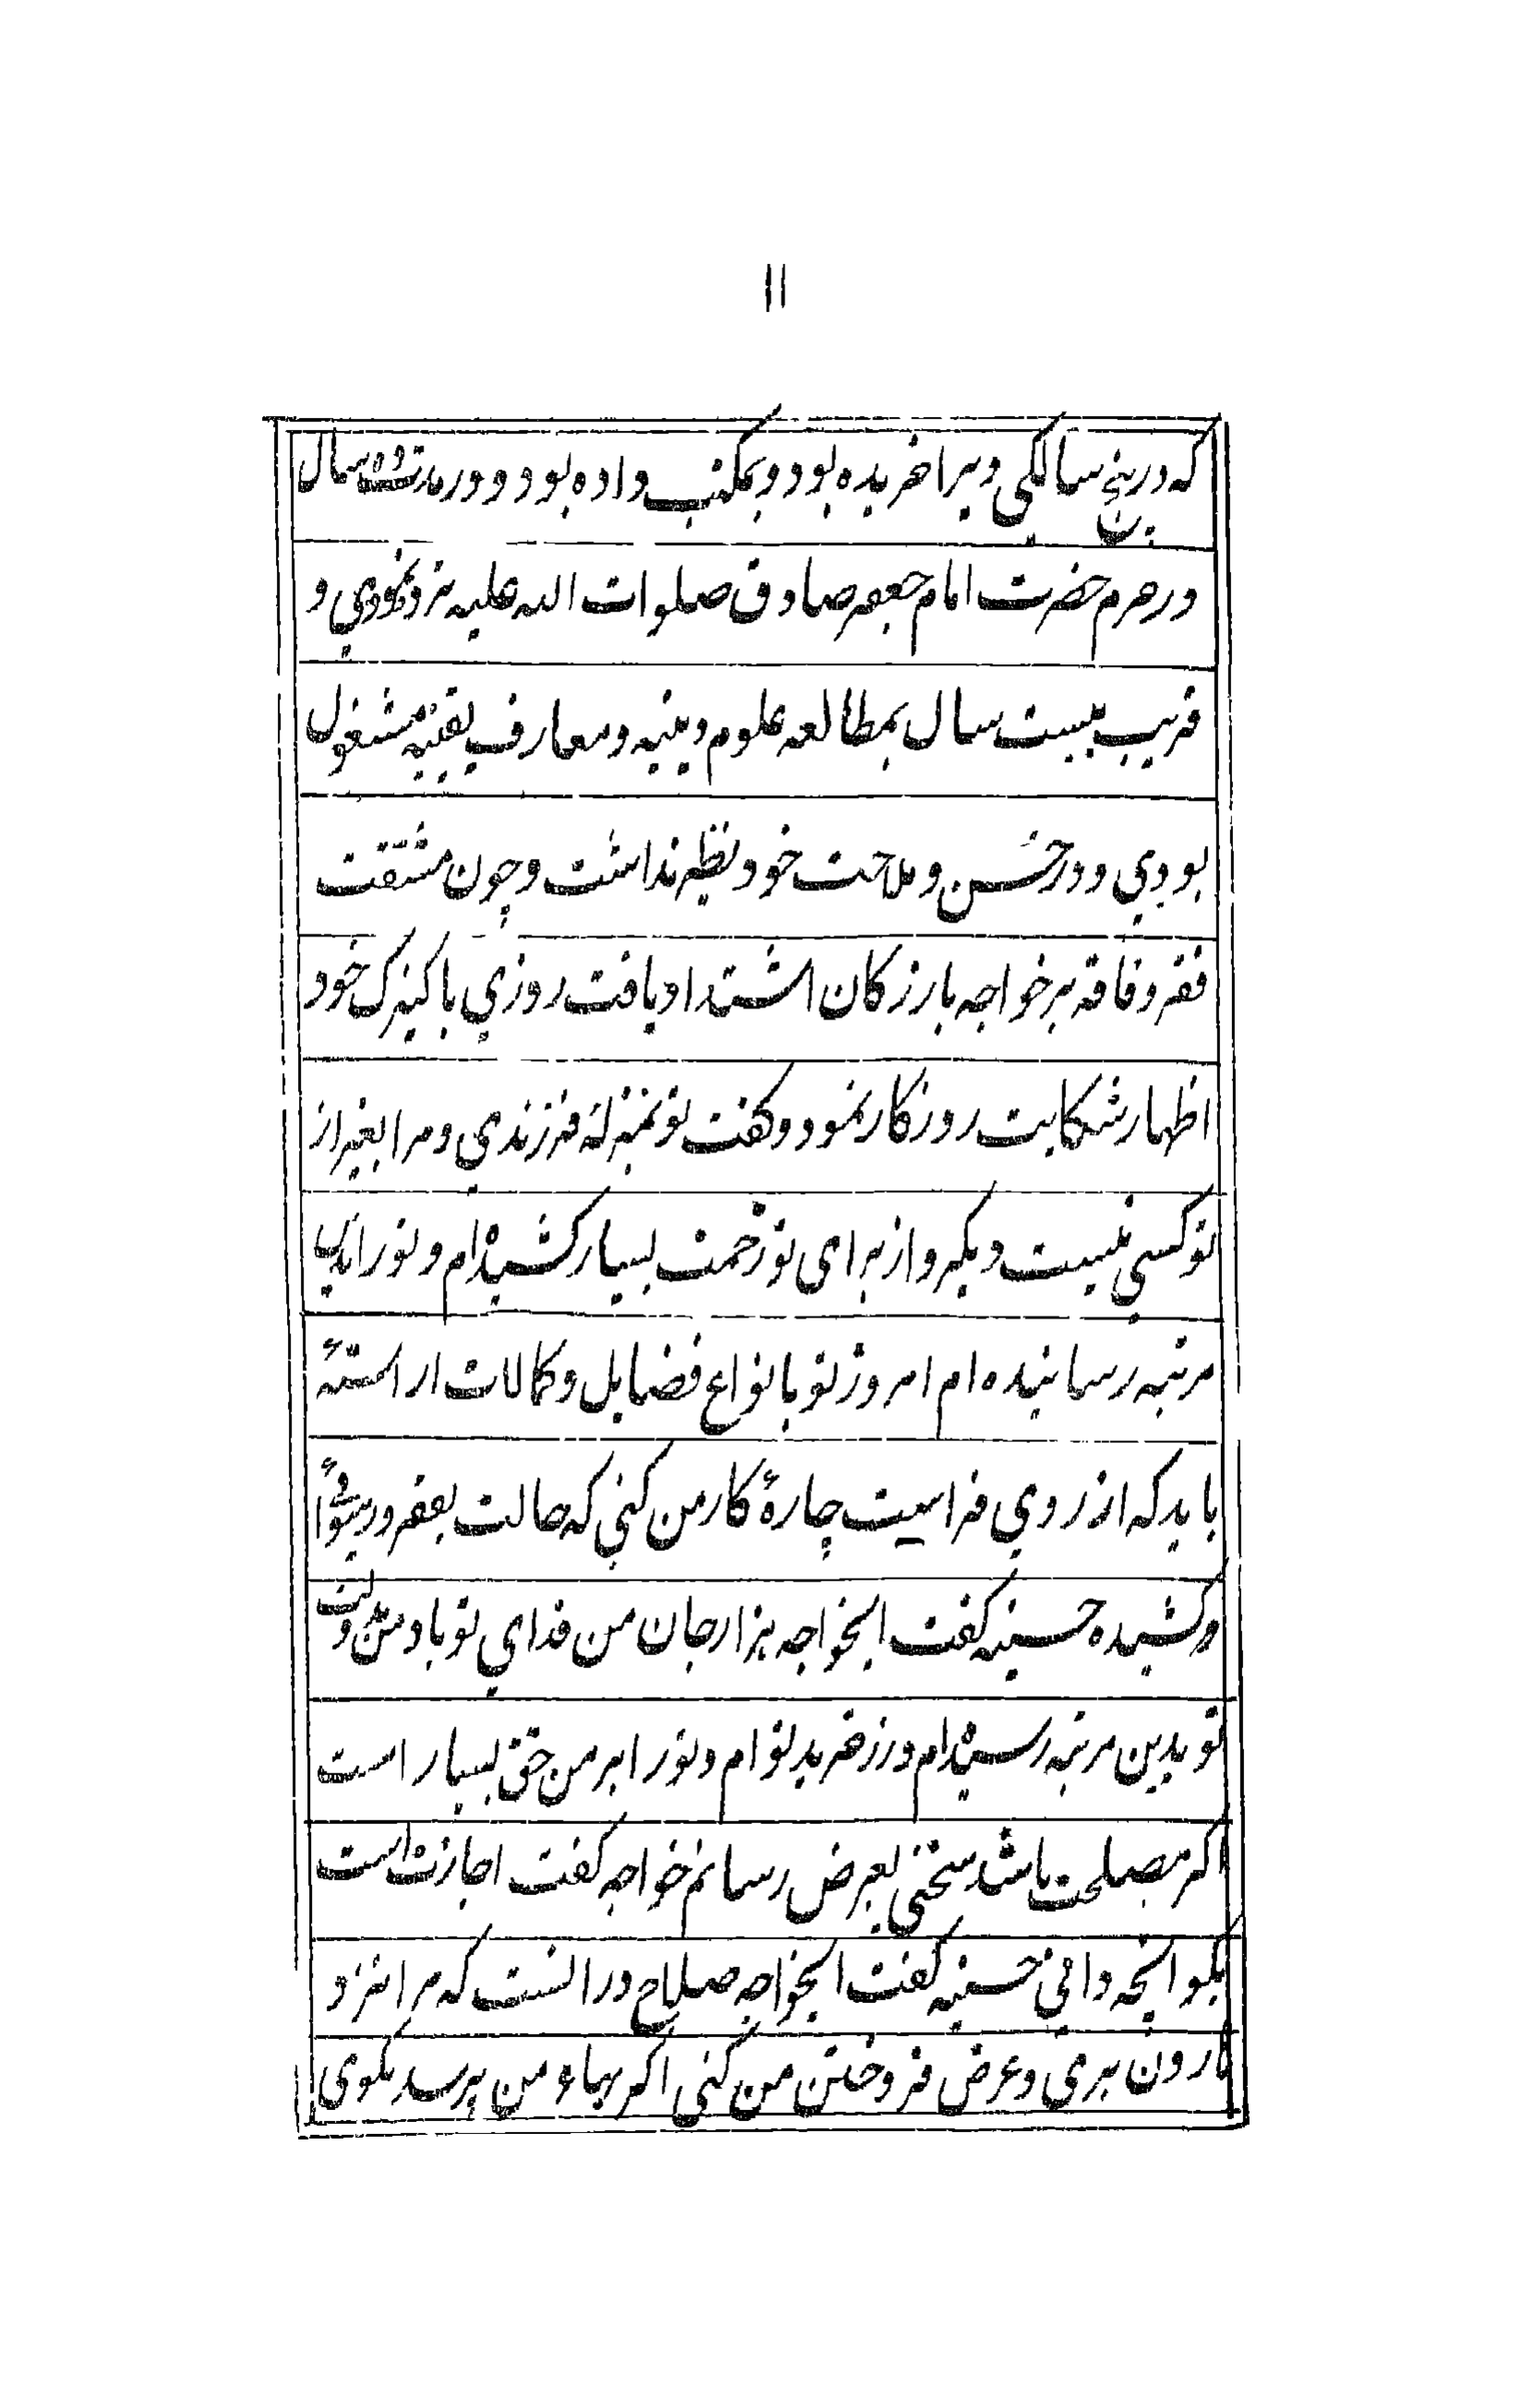 ۱۱
که در پنج سالکی ویرا خریده بود و بمکتب داده بود و در مدت ده سال
در حرم حضرت امام جعفر صادق صلوات الله علیه تردد نمودی و
قریب بیست سال بمطالعه علوم دینیه و معارف یقینیه مشغول
بودی و در حسن و ملاحت خود نظیر نداشت و چون مشقت
فقر و فاقه بر خواجه بازرکان اشتداد یافت روزی با کنیزک خود
اظهار شکایت روزکار نمود و کفت تو بمنزلهٔ فرزندی و مرا بغیر از
تو کسی نیست دیکر و از برای تو زحمت بسیار کشیده‌ام و تو را باین
مرتبه رسانیده ام امروز تو بانواع فضایل و کمالات اراستهٔ
باید که از روی فراست چارهٔ کار من کنی که حالت بفقر و
کشیده حسنیه کفت ایخواجه هزار جان من فدای تو باد من دولت
تو بدین مرتبه رسیده‌ام و زرخرید توام و تو را بر من حق بسیار است
اکر مصلحت باشد سخنی بعرض رسانم خواجه کفت اجازت است
بکو انچه دانی حسنیه کفت ایخواجه صلاح در انست که مرا نزد
هارون بری و عرض فروختن من کنی اکر بهاء من پرسد بکوی